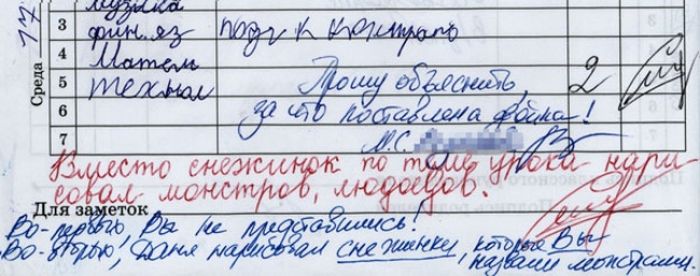 17
Среда
музыка
3 фин. яз подг к контраго
4 Матем
5 технол Прошу объяснить, 2
6 за что поставлена двойка!
7 М.С.
Вместо снежинок по теме урока нари
совал монстров, людоедов.
Для заметок
Во-первых, Вы не представились!
Во-вторых, Даня нарисовал снежинки, которые Вы
назвали монстрами.